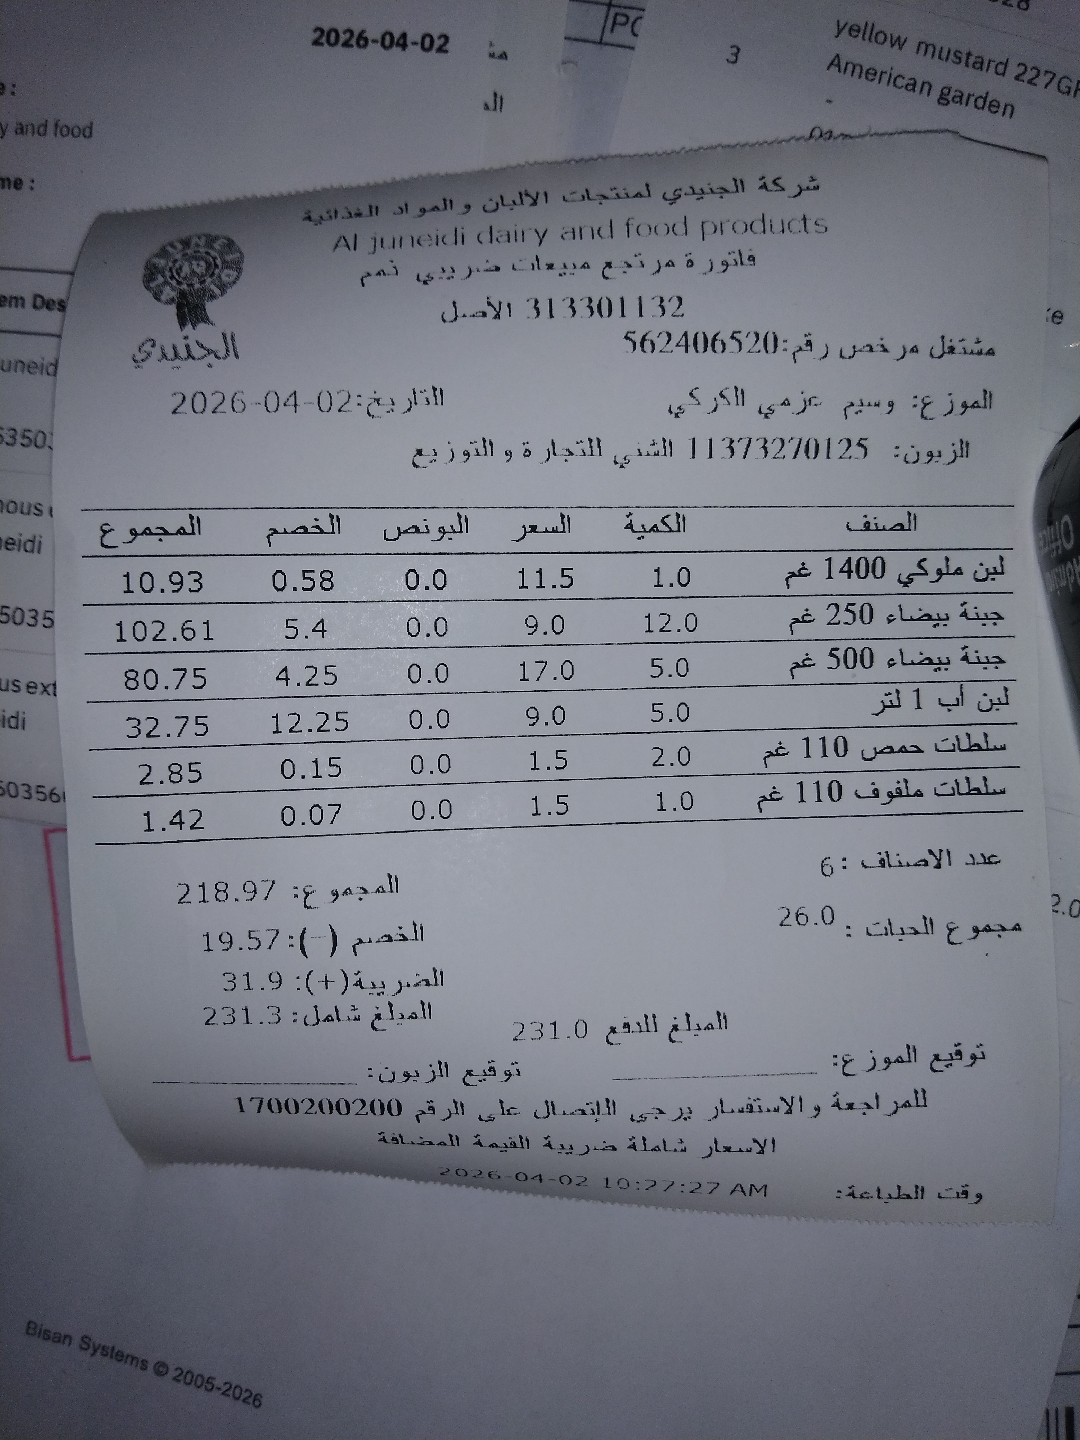 2026-04-02
yellow mustard 227GR
3
American garden
y and food
شركة الجنيدي لمنتجات الألبان والمواد الغذائية
Al juneidi dairy and food products
فاتورة مرتجع مبيعات ضريبي نمم
313301132 الأصل
الجنيدي
مشتغل مرخص رقم:562406520
الموزع: وسيم عزمي الكركي التاريخ:2026-04-02
الزبون: 11373270125 الشني للتجارة والتوزيع
الصنف الكمية السعر البونص الخصم المجموع
لبن ملوكي 1400 غم 1.0 11.5 0.0 0.58 10.93
جبنة بيضاء 250 غم 12.0 9.0 0.0 5.4 102.61
جبنة بيضاء 500 غم 5.0 17.0 0.0 4.25 80.75
لبن أب 1 لتر 5.0 9.0 0.0 12.25 32.75
سلطات حمص 110 غم 2.0 1.5 0.0 0.15 2.85
سلطات ملفوف 110 غم 1.0 1.5 0.0 0.07 1.42
عدد الاصناف :6
المجموع: 218.97
مجموع الحبات : 26.0
الخصم (-): 19.57
الضريبة(+): 31.9
المبلغ شامل: 231.3
المبلغ للدفع 231.0
توقيع الموزع: توقيع الزبون:
للمراجعة والاستفسار يرجى الإتصال على الرقم 1700200200
الاسعار شاملة ضريبة القيمة المضافة
وقت الطباعة: 2026-04-02 10:27:27 AM
Bisan Systems © 2005-2026